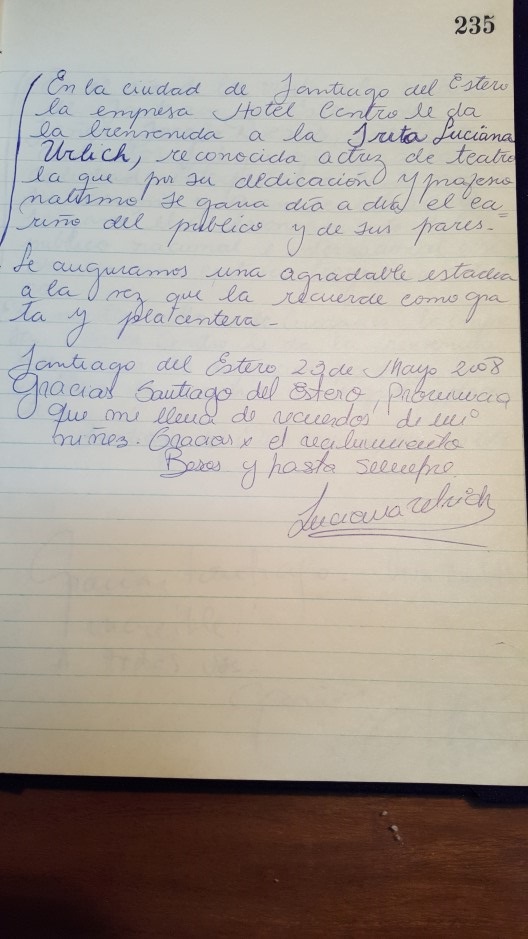 235
En la ciudad de Santiago del Estero
la empresa Hotel Centro le da
la bienvenida a la Srita Luciana
Urlich, reconocida actriz de teatro
la que por su dedicación y profesio
nalismo se gana día a día el ca=
riño del público y de sus pares.-
Le auguramos una agradable estadía
a la vez que la recuerde como gra
ta y placentera-
Santiago del Estero 23 de Mayo 2008
Gracias Santiago del Estero, Provincia
que me llena de recuerdos de mi
niñez. Gracias x el recibimiento
Besos y hasta siempre
Luciana Urlich